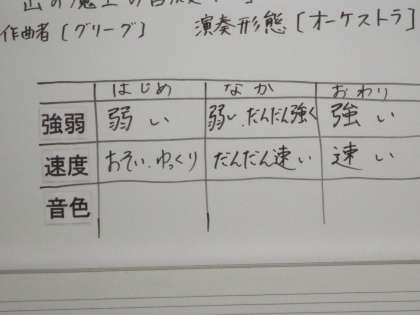 山の魔王の
作曲者[グリーグ] 演奏形態[オーケストラ]
はじめ なか おわり
強弱 弱い 弱い、だんだん強く 強い
速度 おそい、ゆっくり だんだん速い 速い
音色